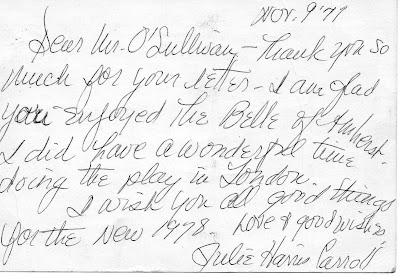 Nov. 9 '77
Dear Mr. O'Sullivan - Thank you so
much for your letter - I am glad
you enjoyed The Belle of Amherst.
I did have a wonderful time
doing the play in London.
I wish you all good things
for the New 1978. Love & good wishes
Julie Harris Carroll